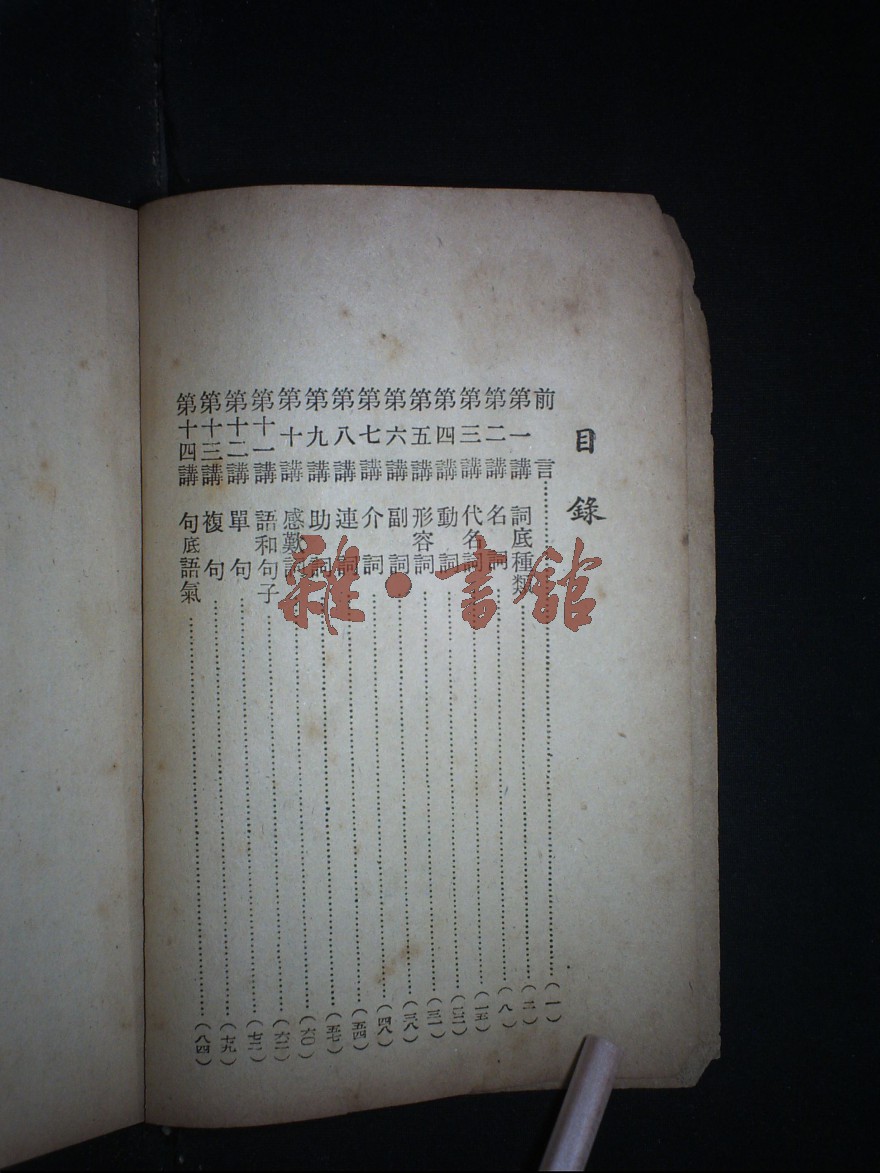 目錄
前言……(一)
第一講 詞底種類……(二)
第二講 名詞……(八)
第三講 代名詞……(一五)
第四講 動詞……(二二)
第五講 形容詞……(三一)
第六講 副詞……(三八)
第七講 介詞……(四八)
第八講 連詞……(五四)
第九講 助詞……(五七)
第十講 感歎詞……(六〇)
第十一講 語和句子……(六二)
第十二講 單句……(七二)
第十三講 複句……(七九)
第十四講 句底語氣……(八四)
雜·書館